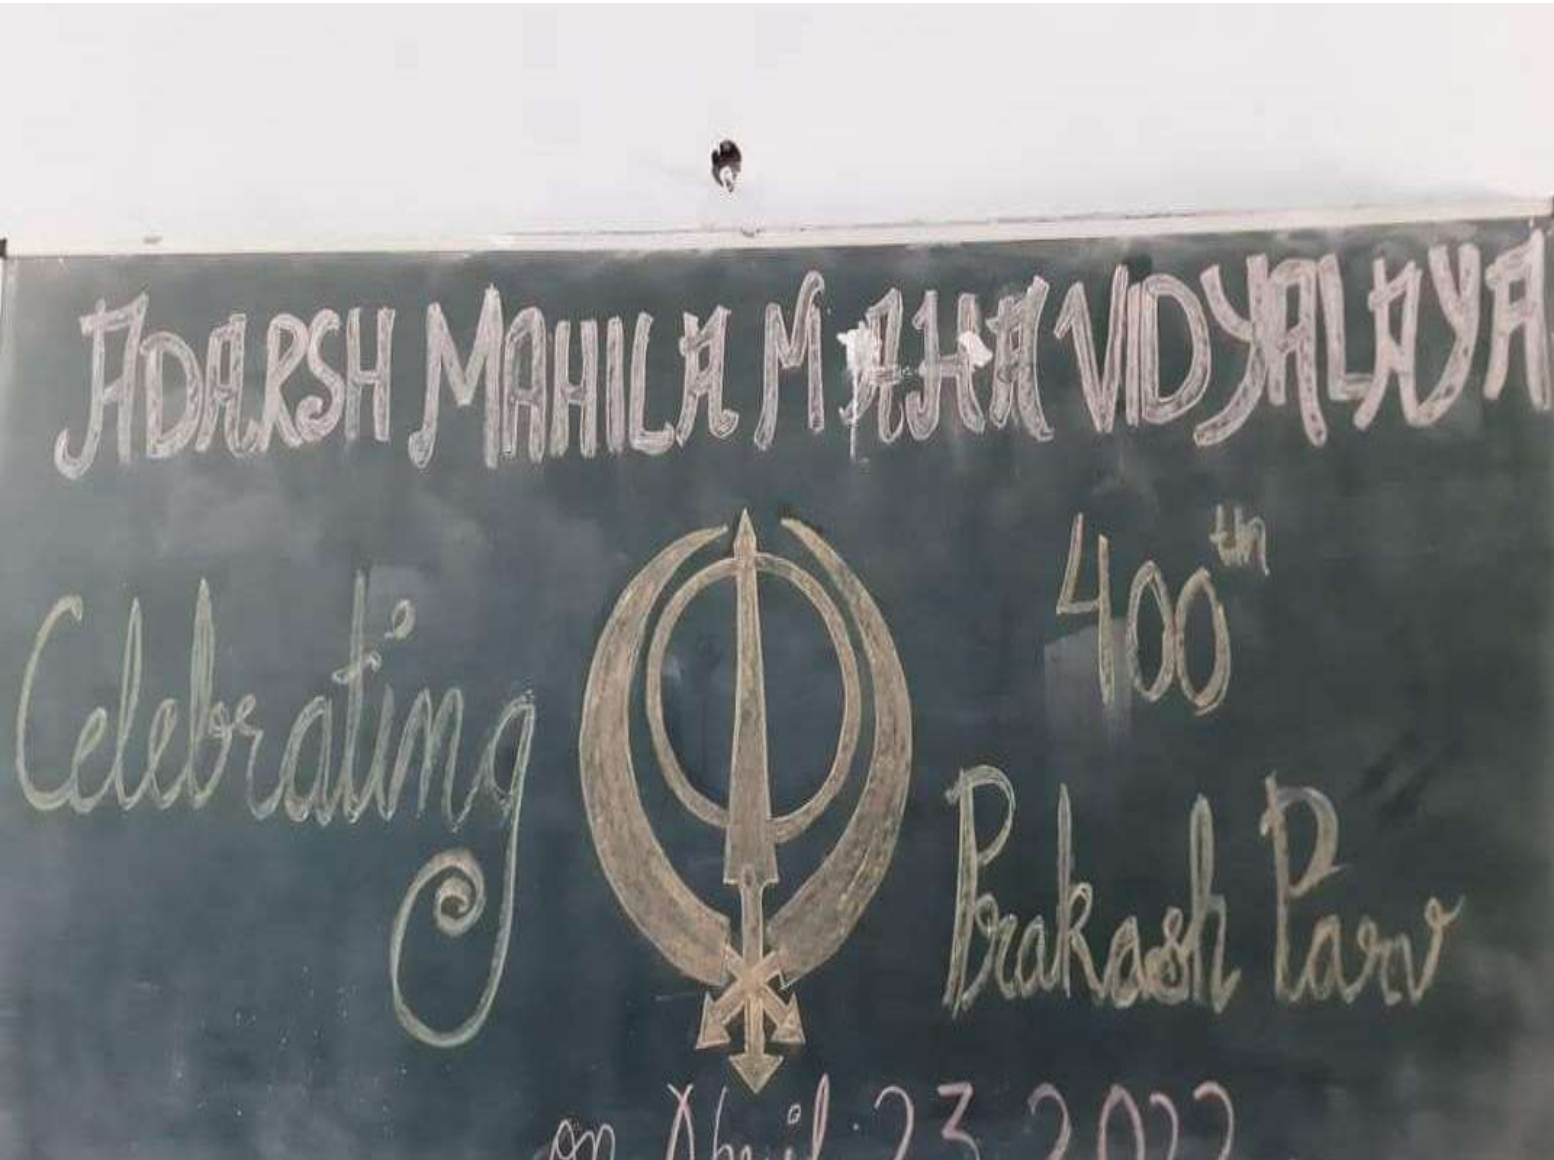 ADARSH MAHILA MAHA VIDYALAYA
Celebrating
400th
Prakash Parv
on April 23 2022